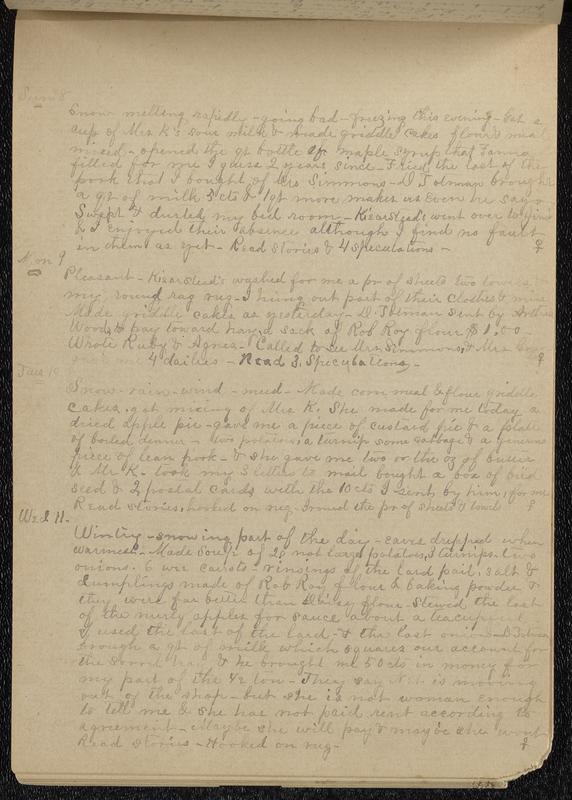 Sun 8
Snow melting rapidly - going bad - freezing this evening - Got a
cup of Mrs K's sour milk & made griddle cakes flour & meal
mixed - opened the qt bottle of maple syrup that
filled for me I guess 2 years since. Fried the last of the
pork that I bought of Mrs Simmons - D Tolman brought
a qt of milk 5 cts & 1 qt more makes us even he says
Swept & dusted my bed room - Kierstead's went over to
& I enjoyed their absence although I find no fault
in them as yet - Read stories & 4 speculations -
Mon 9
Pleasant - Kierstead's washed for me a pr of sheets two towels
my round rag rug - I hung out part of their clothes & mine
Made griddle cakes as yesterday - D. Tolman sent by Arthur
Woods to pay toward hay a sack of Rob Roy flour $1.00
Wrote Ruby & Agnes - Called to see Mrs Simmons, & Mrs
4 dailies - Read 3. Speculations -
Tues 10
Snow - rain - wind - mud - Made corn meal & flour griddle
cakes, got mixing of Mrs K. She made for me today a
dried apple pie - gave me a piece of custard pie & a plate
of boiled dinner - two potatoes, a turnip some cabbage & a generous
piece of lean pork - & she gave me two or three oz of butter
& Mr K - took my 3 letters to mail bought a box of bird
seed & 2 postal cards with the 10 cts I sent by him, for me
Read stories, hooked on rug. Ironed the pr of sheets & towels
Wed 11.
Wintry - snowing part of the day - eaves dripped when
warmest - Made soup of 2 not large potatoes, 3 turnips. two
onions. 6 wee carrots - rinsings of the lard pail, salt &
dumplings made of Rob Roy flour & baking powder &
they were far better than Daisy flour - Stewed the last
of the nurly apples for sauce about a teacupful
& used the last of the lard - & the last onions - D Tolman
brough a qt of milk which squares our account for
the hay & he brought me 50 cts in money for
my part of the 1/2 ton - They say Net is moving
out of the shop - but she is not woman enough
to tell me & she has not paid rent according to
agreement - Maybe she will pay & maybe she won't
Read stories - Hooked on rug -